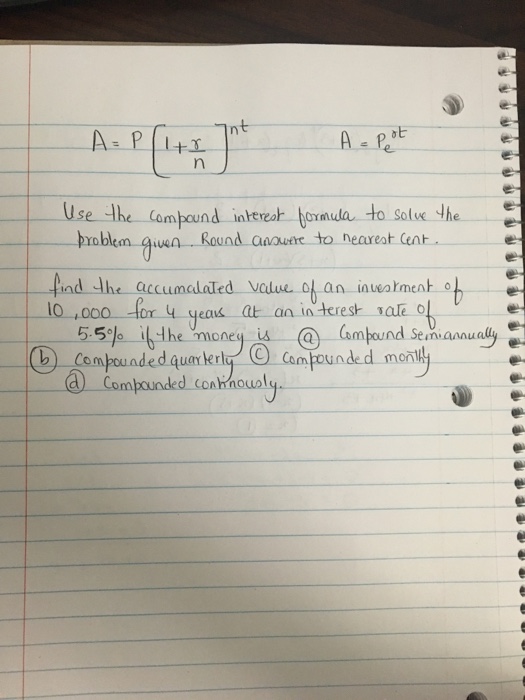 A = P [1 + r/n]^nt A = Pe^rt
Use the compound interest formula to solve the
problem given. Round answere to nearest cent.
find the accumalated value of an investment of
10,000 for 4 years at an interest rate of
5.5% if the money is (a) Compound semiannually
(b) compounded quarterly (c) compounded monthly
(d) Compounded continously.